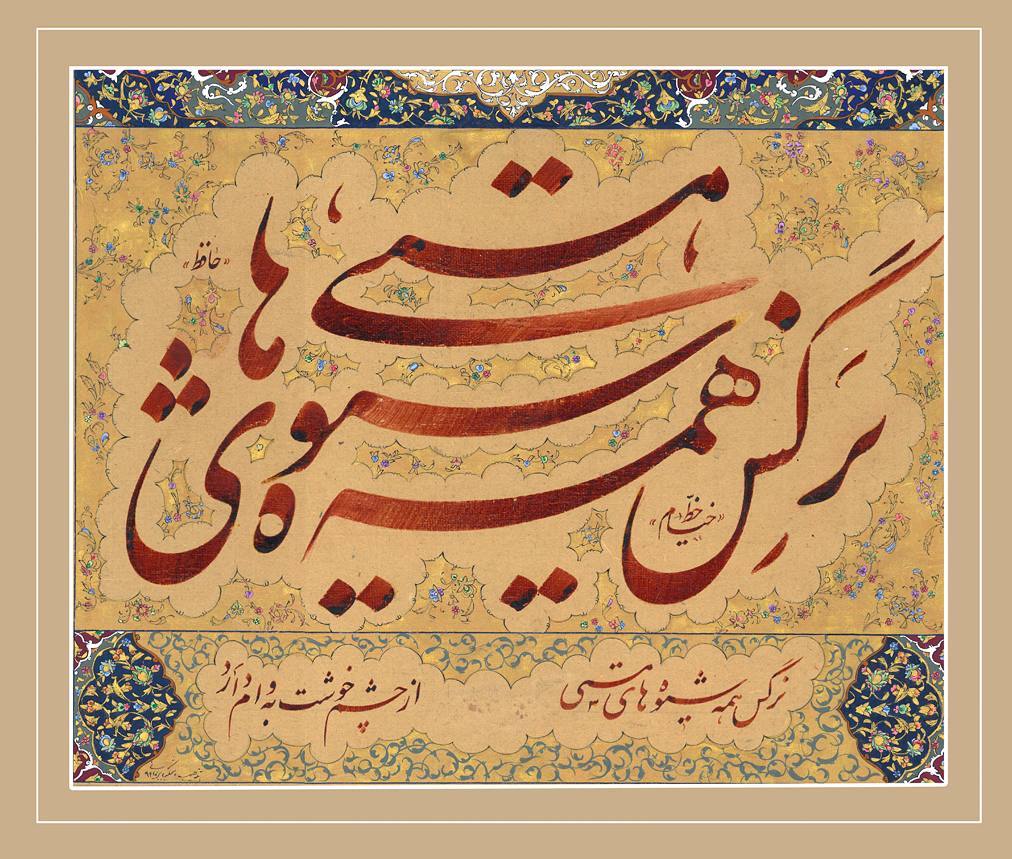 نرگس همه شیوه‌های مستی
«حافظ»
«خط خیام»
نرگس همه شیوه‌های مستی
از چشم خوشت به وام دارد